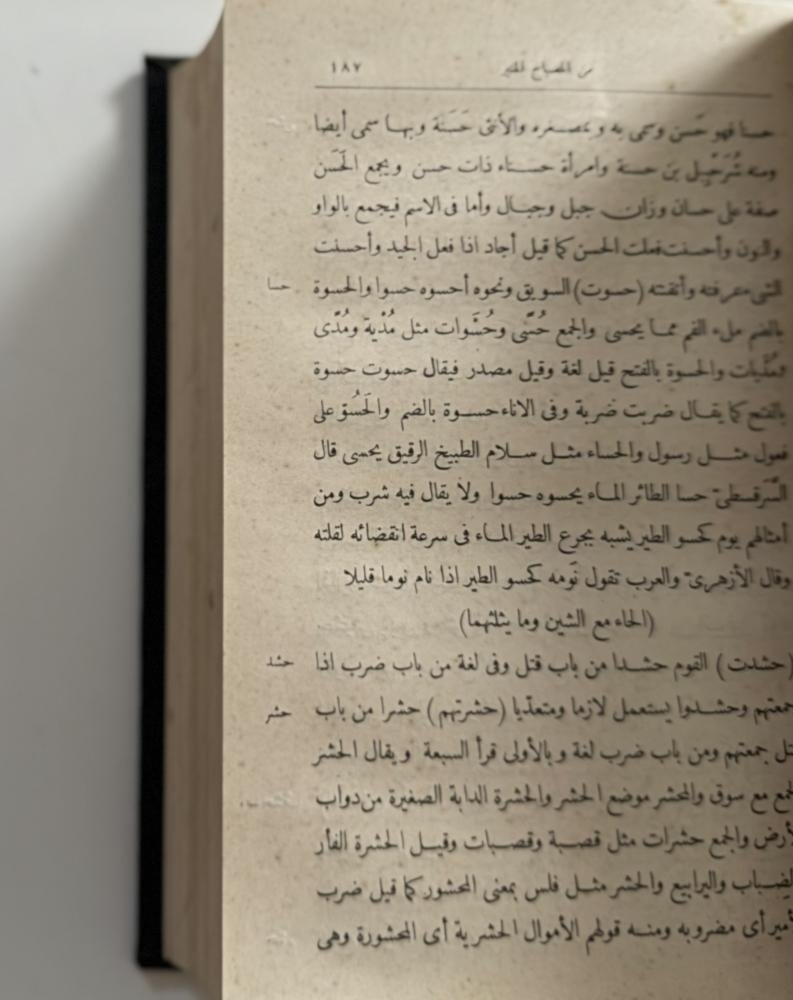 من المصباح المنير ١٨٧
حسنا فهو حسن وسمى به وبمصغره والأنثى حَسَنة وبهـا سمى أيضا
ومنه شُرَحْبِيل بن حسنة وامرأة حسـناء ذات حسن ويجمع الحَسَن
صفة على حسان وزان جبل وجبـال وأما فى الاسم فيجمع بالواو
والنون وأحسـنت فعلت الحسن كما قيل أجاد اذا فعل الجيد وأحسنت
الشئ عرفته وأتقنته (حسوت) السويق ونحوه أحسوه حسوا والحسوة حسا
بالضم ملء الفم ممـا يحسى والجمع حُسًى وحُسُوات مثل مُدْية ومُدًى
ومُدُيات والحسـوة بالفتح قيل لغة وقيل مصدر فيقال حسوت حسوة
بالفتح كما يقـال ضربت ضربة وفى الاناء حسـوة بالضم والحَسُوّ على
فعول مثـل رسول والحساء مثـل سـلام الطبيخ الرقيق يحسى قال
السَّرَقسطىّ حسا الطائر المـاء يحسوه حسوا ولا يقال فيه شرب ومن
أمثالهم يوم كحسو الطير يشبه بجرع الطير المـاء فى سرعة انقضائه لقلته
وقال الأزهرىّ والعرب تقول نَومه كحسو الطير اذا نام نوما قليلا
(الحاء مع الشين وما يثلثهما)
(حشدت) القوم حشـدا من باب قتل وفى لغة من باب ضرب اذا حشد
جمعتهم وحشـدوا يستعمل لازما ومتعدّيا (حشرتهم) حشرا من باب حشر
جمعتهم ومن باب ضرب لغة وبالأولى قرأ السبعة ويقال الحشر
الجمع مع سوق والمحشر موضع الحشر والحشرة الدابة الصغيرة من دواب
الأرض والجمع حشرات مثل قصبة وقصبات وقيـل الحشرة الفأر
والضـباب واليرابيع والحشر مثـل فلس بمعنى المحشور كما قيل ضرب
الأمير أى مضروبه ومنـه قولهم الأموال الحشرية أى المحشورة وهى